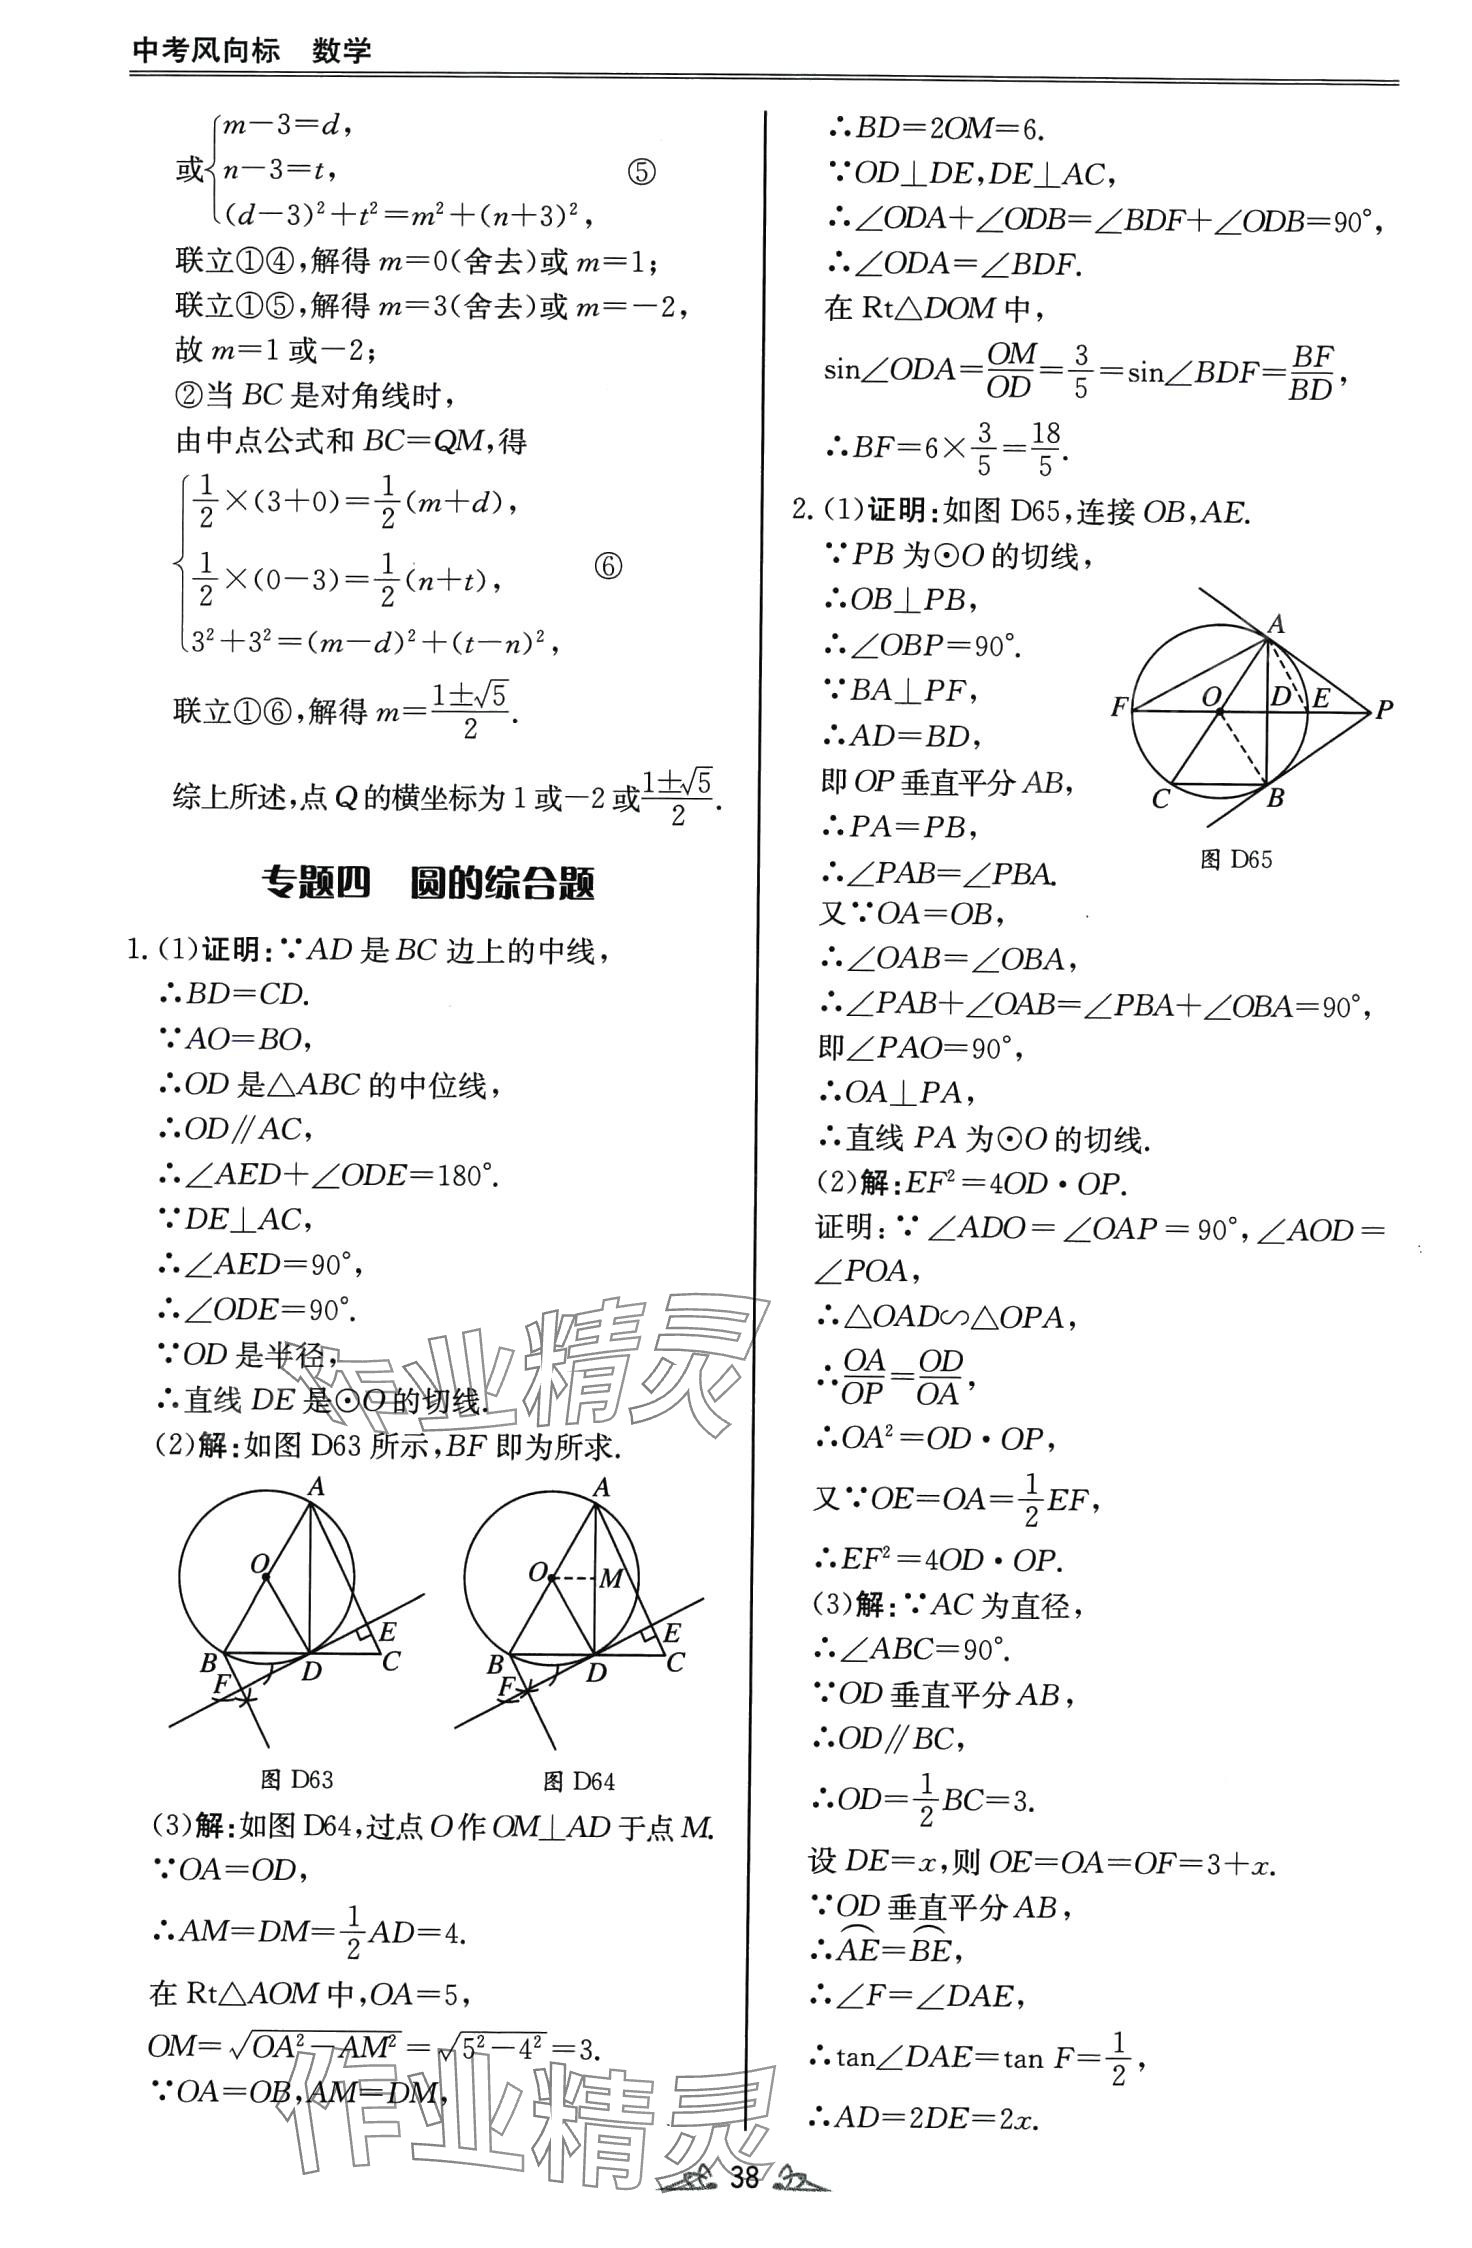 中考风向标 数学
或{m-3=d,
n-3=t, ⑤
(d-3)²+t²=m²+(n+3)²,
联立①④,解得 m=0(舍去)或 m=1;
联立①⑤,解得 m=3(舍去)或 m=-2,
故 m=1 或-2;
②当 BC 是对角线时,
由中点公式和 BC=QM,得
{1/2×(3+0)=1/2(m+d),
1/2×(0-3)=1/2(n+t), ⑥
3²+3²=(m-d)²+(t-n)²,
联立①⑥,解得 m=(1±√5)/2.
综上所述,点 Q 的横坐标为 1 或-2 或(1±√5)/2.
专题四 圆的综合题
1. (1)证明:∵AD 是 BC 边上的中线,
∴BD=CD.
∵AO=BO,
∴OD 是△ABC 的中位线,
∴OD∥AC,
∴∠AED+∠ODE=180°.
∵DE⊥AC,
∴∠AED=90°,
∴∠ODE=90°.
∵OD 是半径,
∴直线 DE 是⊙O 的切线.
(2)解:如图 D63 所示,BF 即为所求.
A
O
B
D
E
C
F
图 D63
A
O
M
B
D
E
C
F
图 D64
(3)解:如图 D64,过点 O 作 OM⊥AD 于点 M.
∵OA=OD,
∴AM=DM=1/2AD=4.
在 Rt△AOM 中,OA=5,
OM=√(OA²-AM²)=√(5²-4²)=3.
∵OA=OB,AM=DM,
∴BD=2OM=6.
∵OD⊥DE,DE⊥AC,
∴∠ODA+∠ODB=∠BDF+∠ODB=90°,
∴∠ODA=∠BDF.
在 Rt△DOM 中,
sin∠ODA=OM/OD=3/5=sin∠BDF=BF/BD,
∴BF=6×3/5=18/5.
2. (1)证明:如图 D65,连接 OB,AE.
∵PB 为⊙O 的切线,
∴OB⊥PB,
∴∠OBP=90°.
∵BA⊥PF,
∴AD=BD,
即 OP 垂直平分 AB,
∴PA=PB,
∴∠PAB=∠PBA.
A
F
O
D
E
P
C
B
图 D65
又∵OA=OB,
∴∠OAB=∠OBA,
∴∠PAB+∠OAB=∠PBA+∠OBA=90°,
即∠PAO=90°,
∴OA⊥PA,
∴直线 PA 为⊙O 的切线.
(2)解:EF²=4OD·OP.
证明:∵∠ADO=∠OAP=90°,∠AOD=
∠POA,
∴△OAD∽△OPA,
∴OA/OP=OD/OA,
∴OA²=OD·OP,
又∵OE=OA=1/2EF,
∴EF²=4OD·OP.
(3)解:∵AC 为直径,
∴∠ABC=90°.
∵OD 垂直平分 AB,
∴OD∥BC,
∴OD=1/2BC=3.
设 DE=x,则 OE=OA=OF=3+x.
∵OD 垂直平分 AB,
∴⌒AE=⌒BE,
∴∠F=∠DAE,
∴tan∠DAE=tan F=1/2,
∴AD=2DE=2x.
38
作业精灵
作业精灵